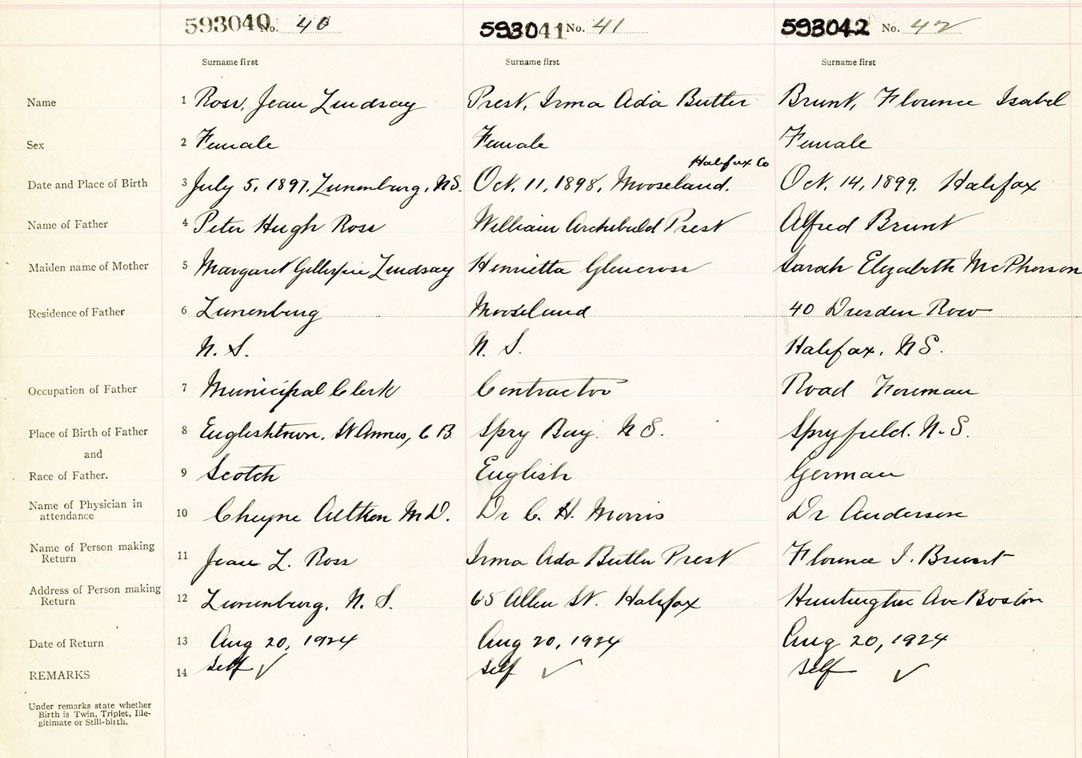 593040 No. 40 593041 No. 41 593042 No. 42
Surname first Surname first Surname first
Name 1 Ross, Jean Lindsay Prest, Irma Ada Butler Brunt, Florence Isabel
Sex 2 Female Female Female
Halifax Co
Date and Place of Birth 3 July 5, 1897, Lunenburg, N.S. Oct. 11, 1898, Mooseland. Oct. 14, 1899. Halifax
Name of Father 4 Peter Hugh Ross William Archibald Prest Alfred Brunt
Maiden name of Mother 5 Margaret Gillespie Lindsay Henrietta Glencross Sarah Elizabeth McPherson
Residence of Father 6 Lunenburg Mooseland 40 Dresden Row
N. S. N. S. Halifax, N.S.
Occupation of Father 7 Municipal Clerk Contractor Road Foreman
Place of Birth of Father 8 Englishtown, St Annes, C B Spry Bay. N S. Spryfield. N.S.
and
Race of Father. 9 Scotch English German
Name of Physician in
attendance 10 Cheyne Aitken M.D. Dr C. H. Morris Dr Anderson
Name of Person making
Return 11 Jean L. Ross Irma Ada Butler Prest Florence I. Brunt
Address of Person making
Return 12 Lunenburg, N. S. 65 Allen St. Halifax Huntington Ave Boston
Date of Return 13 Aug 20, 1924 Aug 20, 1924 Aug 20, 1924
REMARKS 14 Self ✓ Self ✓ Self ✓
Under remarks state whether
Birth is Twin, Triplet, Ille-
gitimate or Still-birth.